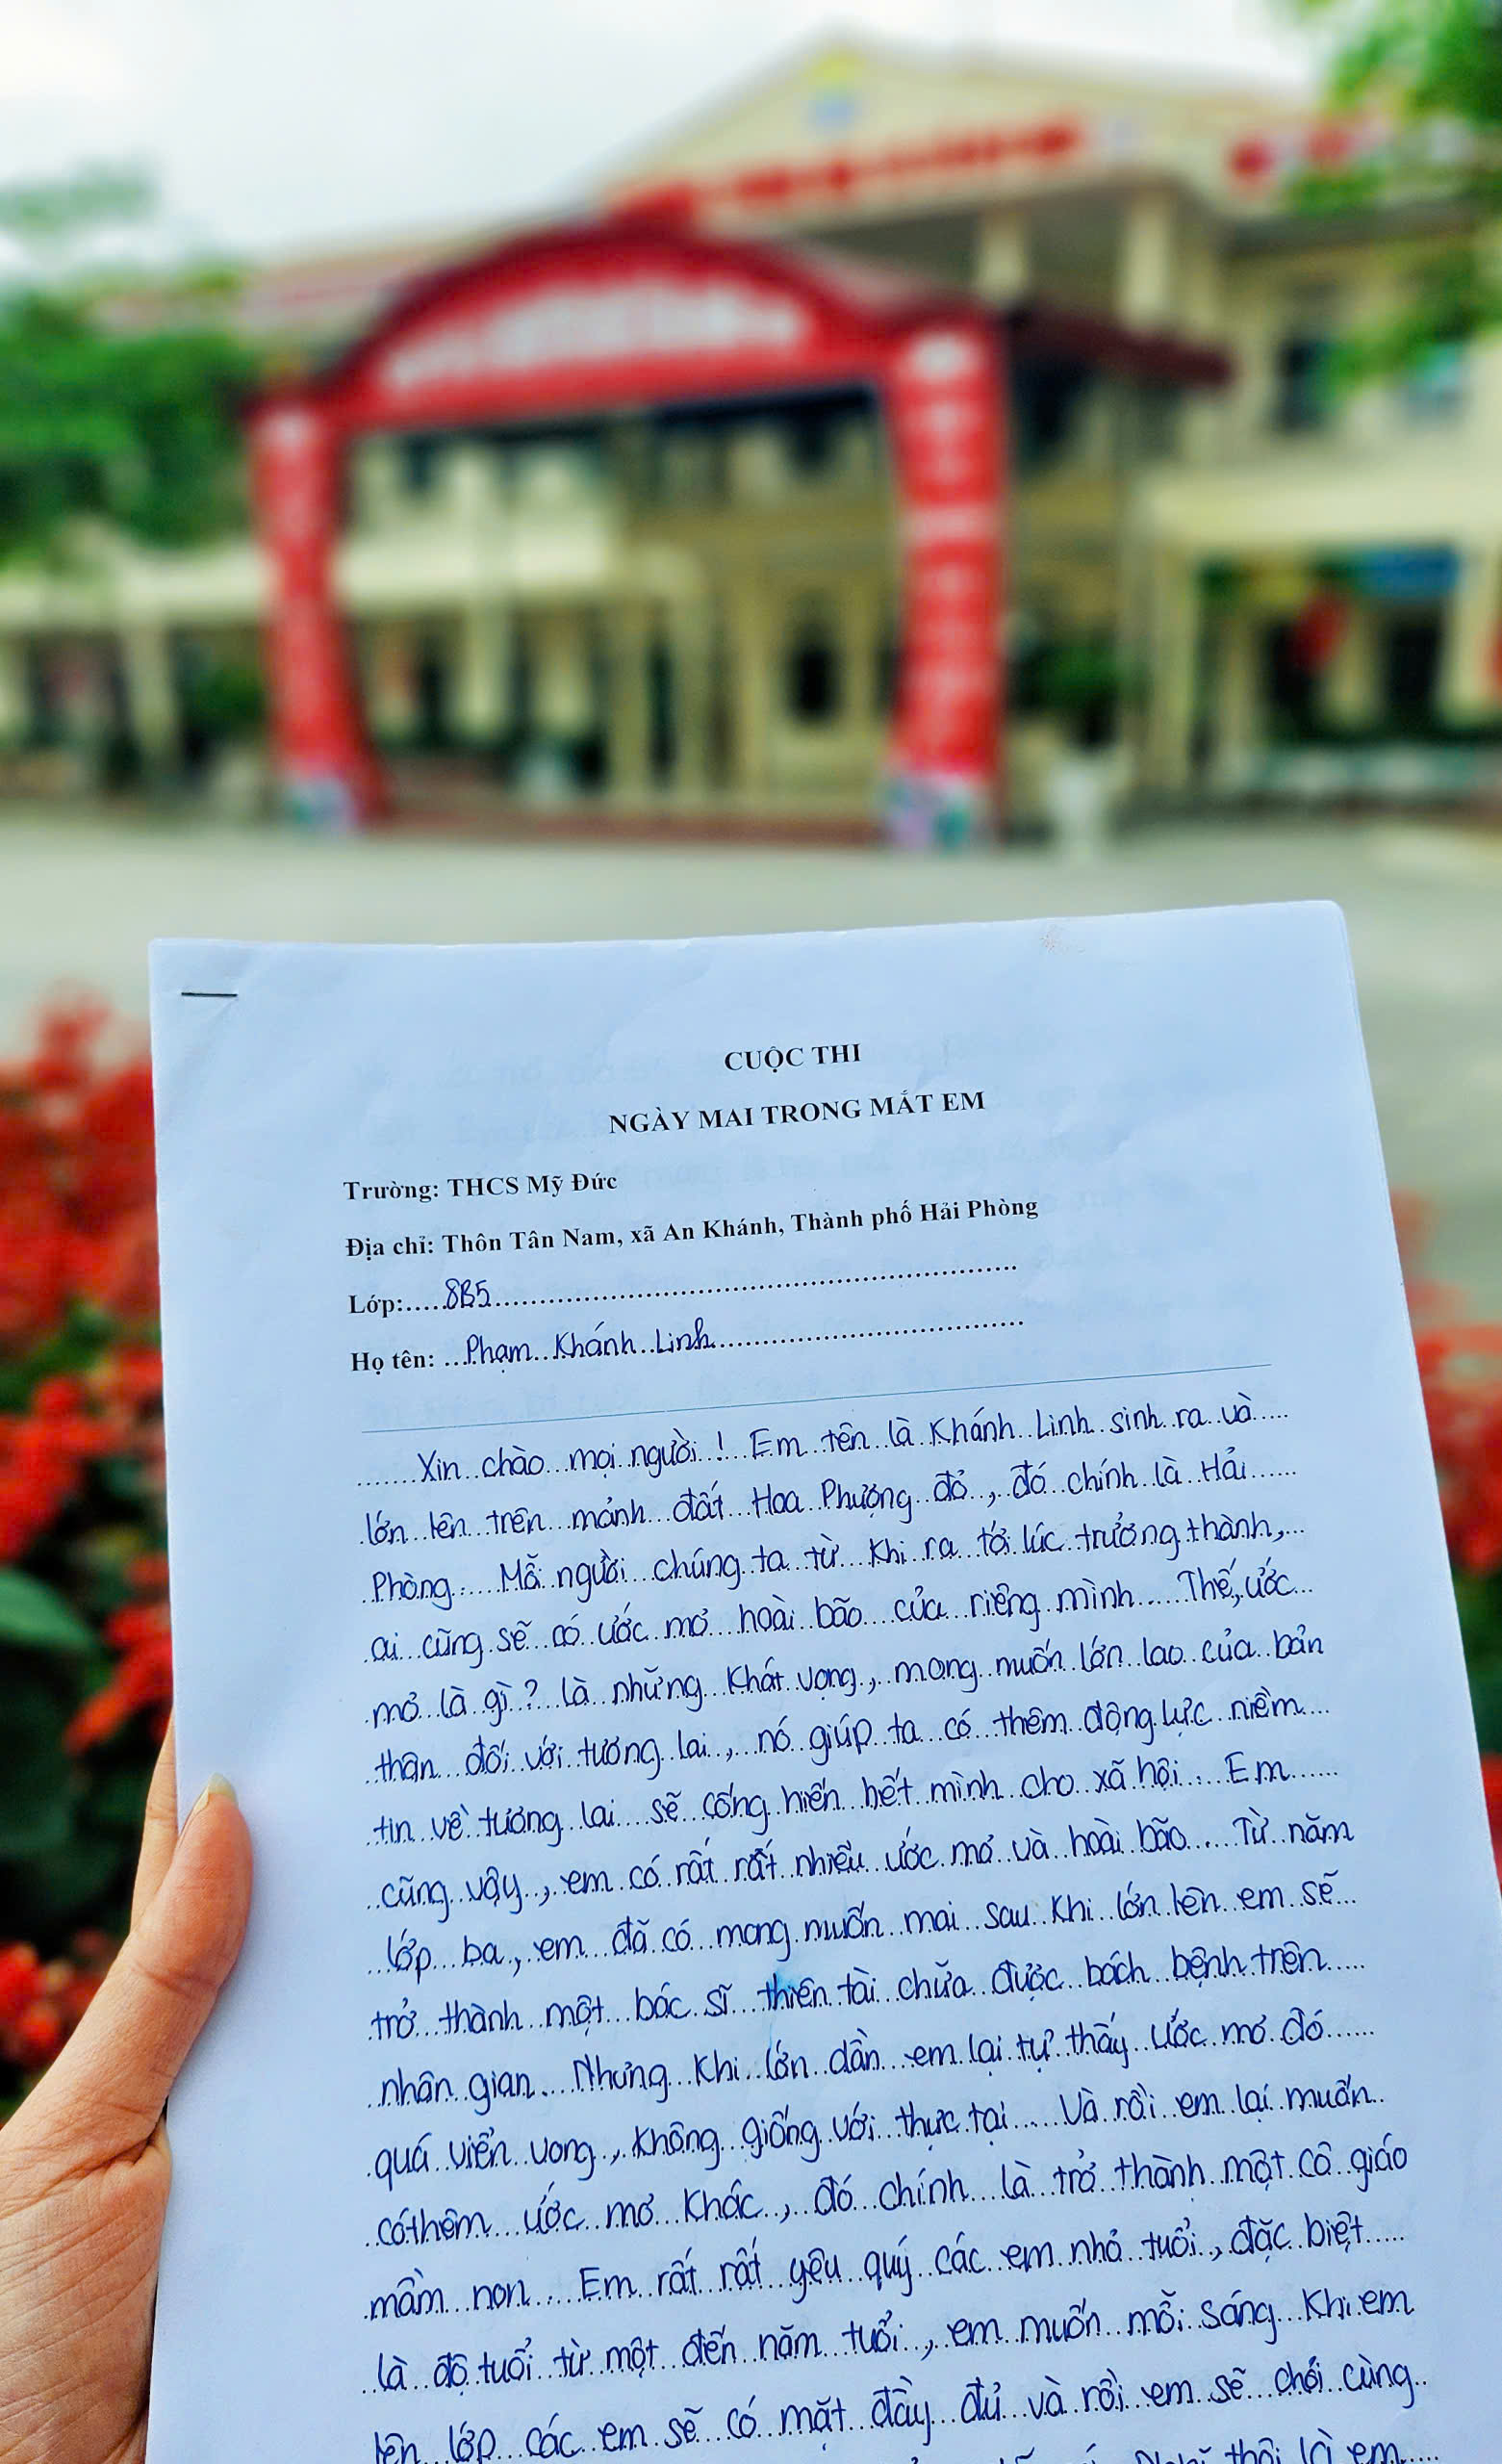 CUỘC THI
NGÀY MAI TRONG MẮT EM
Trường: THCS Mỹ Đức
Địa chỉ: Thôn Tân Nam, xã An Khánh, Thành phố Hải Phòng
Lớp:.....8B5
Họ tên: ...Phạm Khánh Linh
Xin chào mọi người! Em tên là Khánh Linh sinh ra và
lớn lên trên mảnh đất Hoa Phượng đỏ, đó chính là Hải
Phòng. Mỗi người chúng ta từ khi ra tới lúc trưởng thành,
ai cũng sẽ có ước mơ hoài bão của riêng mình. Thế, ước
mơ là gì? là những khát vọng, mong muốn lớn lao của bản
thân đối với tương lai, nó giúp ta có thêm động lực niềm
tin về tương lai sẽ cống hiến hết mình cho xã hội. Em
cũng vậy, em có rất rất nhiều ước mơ và hoài bão. Từ năm
lớp ba, em đã có mong muốn mai sau khi lớn lên em sẽ
trở thành một bác sĩ thiên tài chữa được bách bệnh trên
nhân gian. Nhưng khi lớn dần em lại tự thấy ước mơ đó
quá viển vong, không giống với thực tại. Và rồi em lại muốn
có thêm ước mơ khác, đó chính là trở thành một cô giáo
mầm non. Em rất rất yêu quý các em nhỏ tuổi, đặc biệt
là độ tuổi từ một đến năm tuổi, em muốn mỗi sáng khi em
lên lớp các em sẽ có mặt đầy đủ và rồi em sẽ chơi cùng
thôi là em